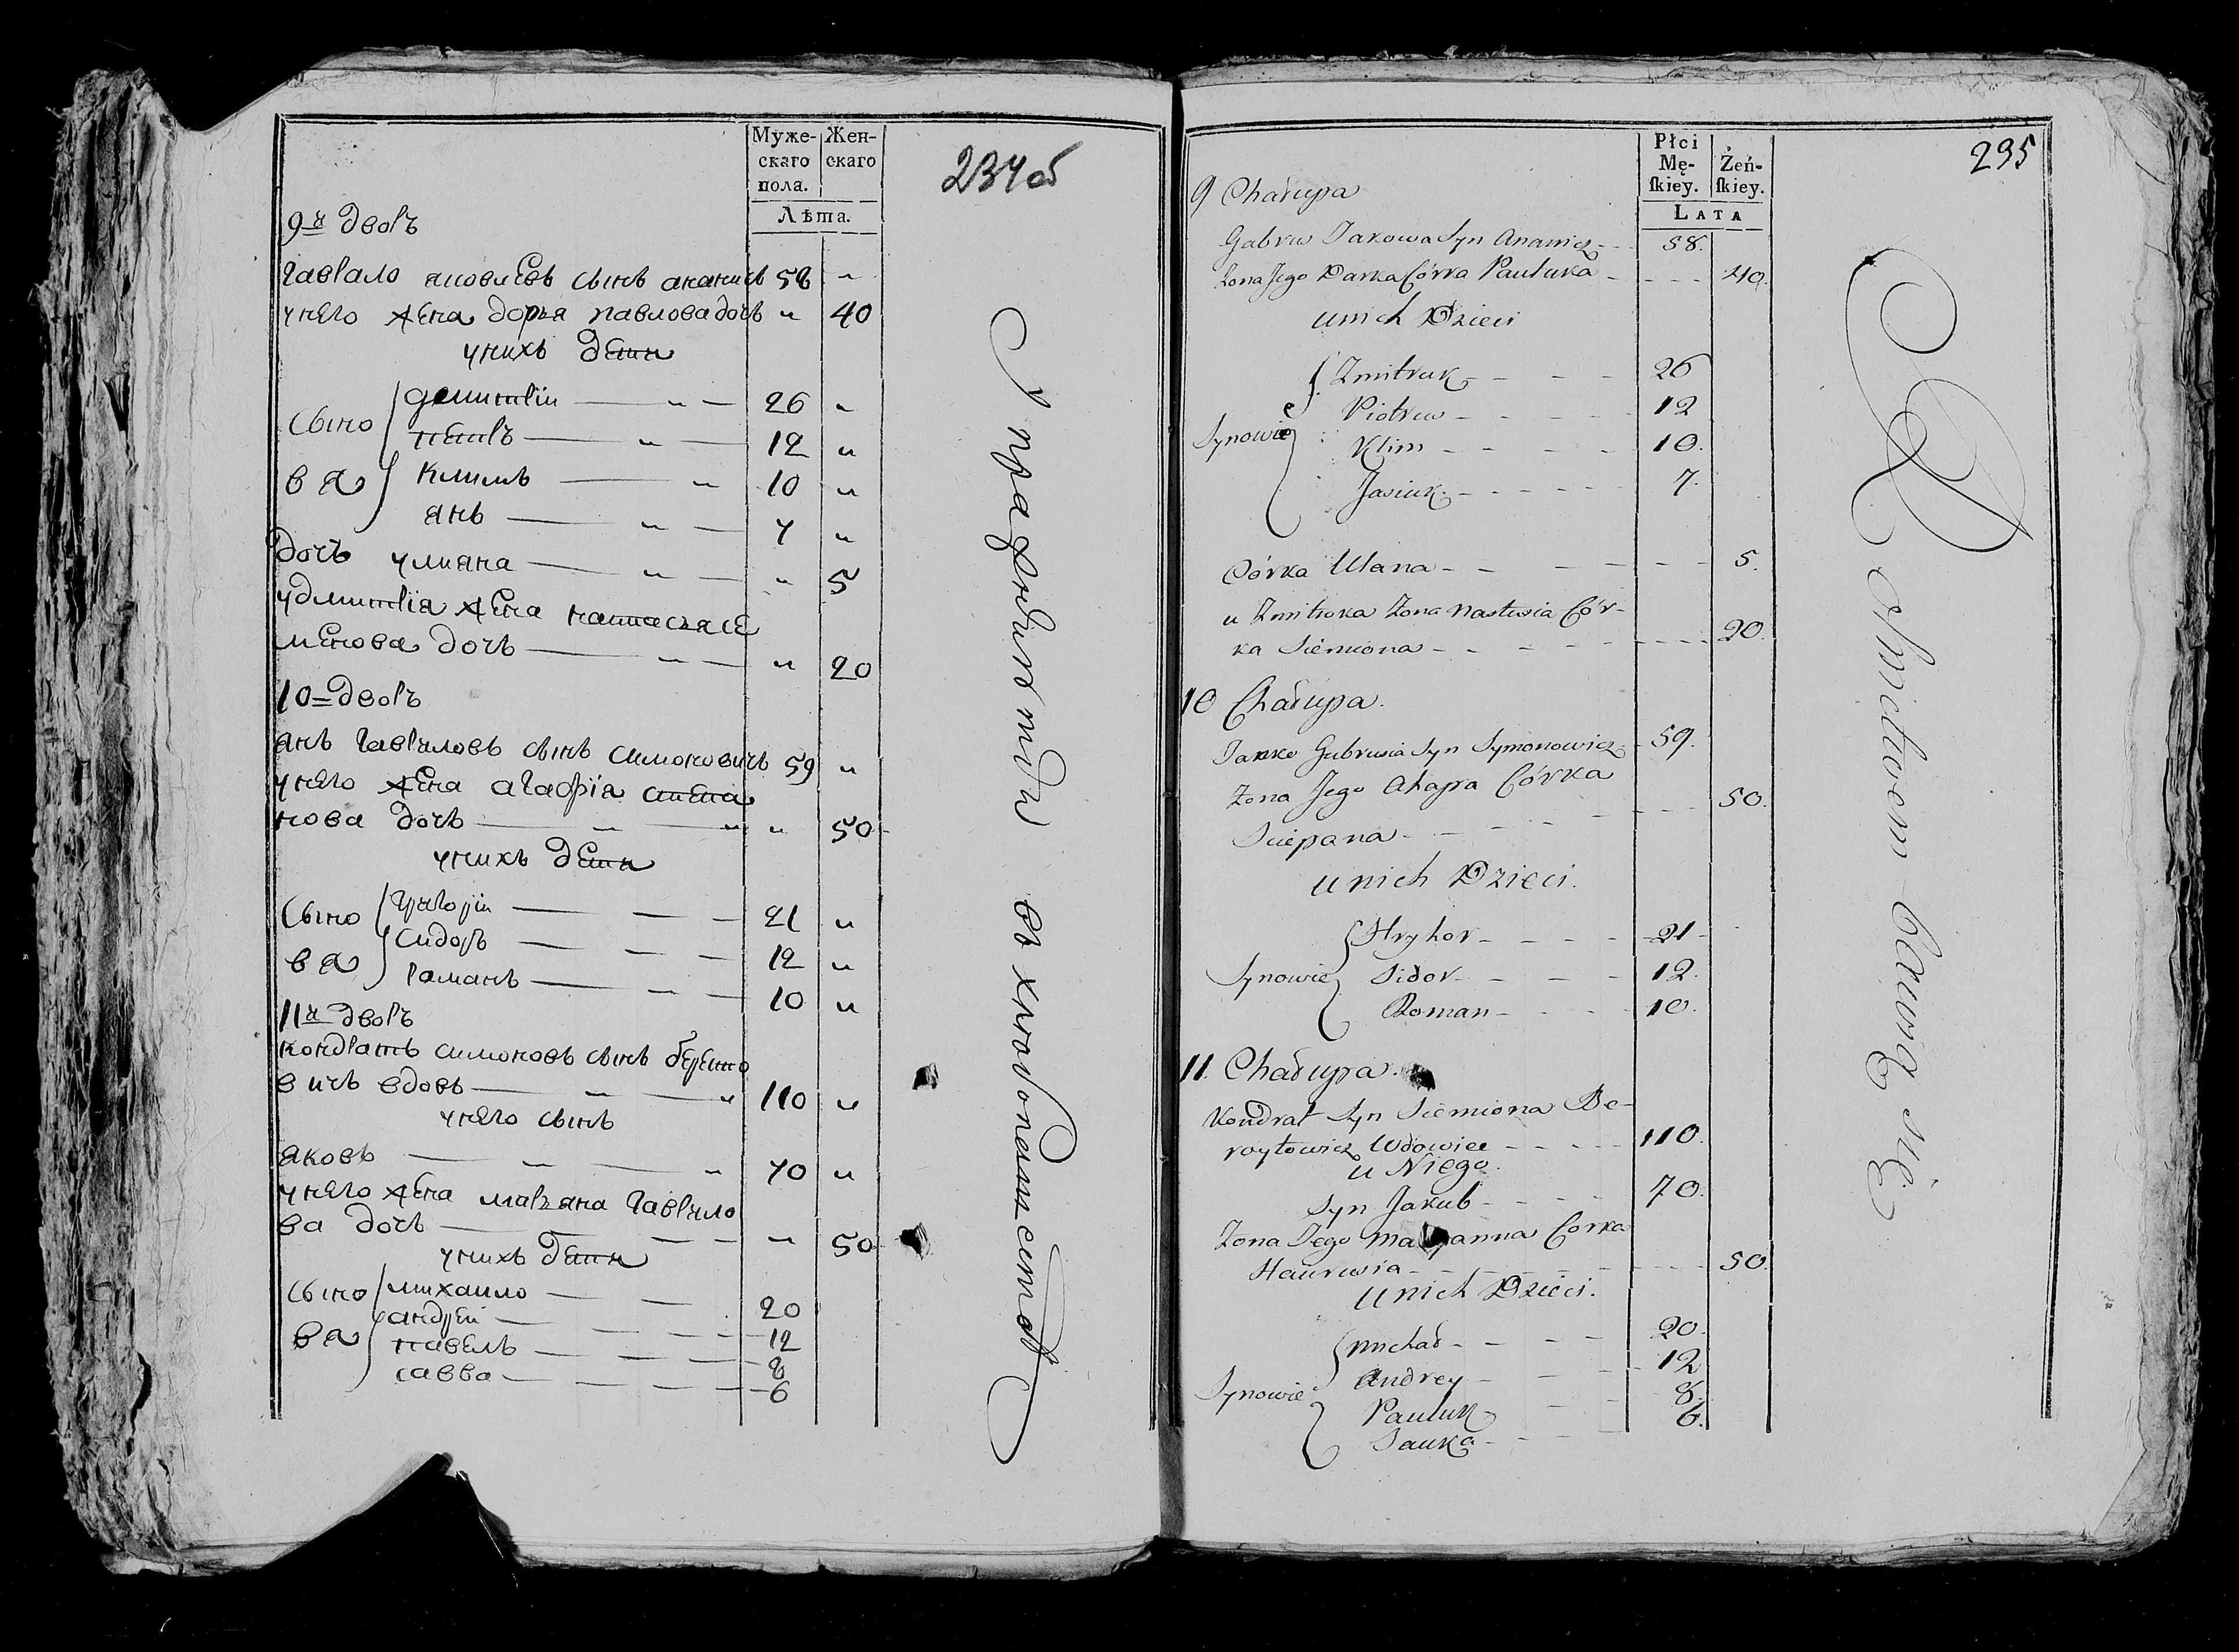 Муже-
скаго
пола.
Жен-
скаго
Лѣта.
234об
9й дворъ
Гаврыло яковлевъ сынъ ананичъ 58 "
унего жена дорья павлова дочь " 40
унихъ дети
Сыно
ва
дмитрій — " — 26 "
петръ — " — 12 "
климъ — " 10 "
янъ — " — 7 "
дочь улиана — " — " 5
удмитрія жена настасья се
менова дочь — " — " 20
10 дворъ
янъ Гаврыловъ сынъ симоновичъ 59 "
унего жена агафія степа
нова дочь — " — " " 50
унихъ дети
Сыно
ва
Григорій — — — 21 "
сидоръ — — — 12 "
романъ — " — 10 "
11й дворъ
кондратъ симоновъ сынъ берейто
вичъ вдовъ — " — " 110 "
унего сынъ
яковъ — " — " 70 "
унего жена марьяна Гаврыло
ва дочь — — — " 50
унихъ дети
Сыно
ва
михайло — — 20
андрей — — — 12
павелъ — — — 8
савва — — — 6
Płci
Mę-
skiey.
Żeń-
skiey.
LATA
235
9 Chałupa
Gabruś Jakowa Syn Ananicz - - 58.
Zona Jego Darka Córka Pauluka - - - - 40.
u nich Dzieci
Synowie
Zmitruk - - - 26
Piotruś - - - 12
Klim - - - 10.
Jasiuk - - - - 7.
Córka Ulana - - - - - - 5.
u Zmitroka Zona Nastusia Cór-
ka Siemiona - - - - - - - 20.
10 Chałupa.
Janko Gabrusia Syn Symonowicz - 59.
Zona Jego Ahapa Córka
Sciepana - - - - - - 50.
u nich Dzieci.
Synowie
Hryhor - - - - 21
Sidor - - - - 12.
Roman - - - 10.
11. Chałupa.
Kondrat Syn Siemiona Be-
raytowicz Wdowiec - - - - 110.
u Niego.
Syn Jakub - - - 70.
Zona Jego Maryanna Corka
Haurusia - - - - - - 50.
u nich Dzieci.
Synowie
Michał - - - - 20.
Andrey - - - 12
Pauluk - - - 8.
Sauka - - - 6.